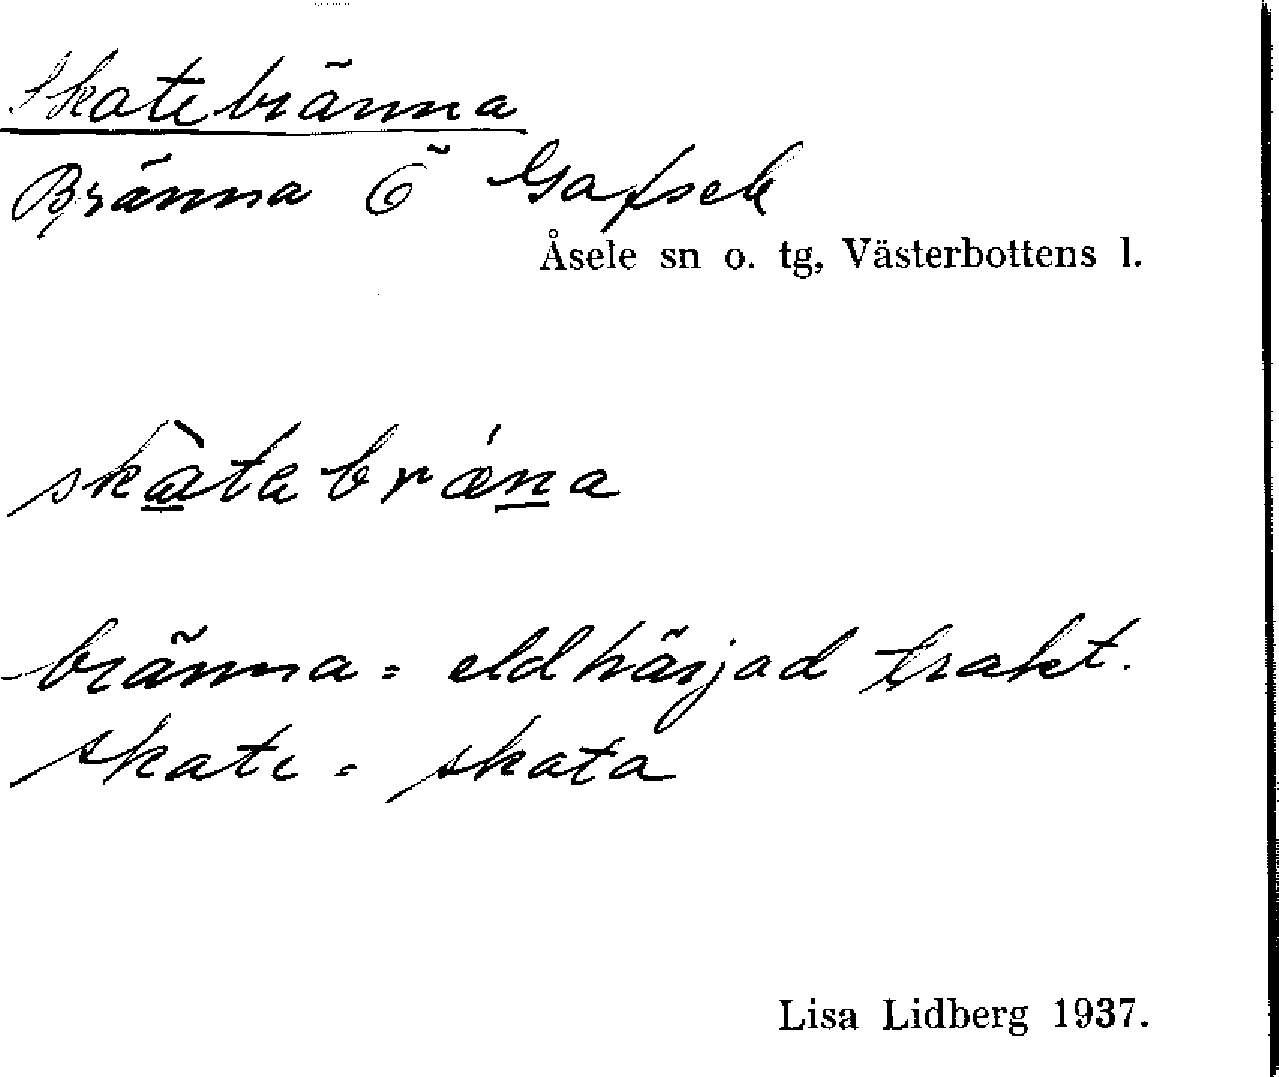 Skatebränna
Bränna Ö Gafsele
Åsele sn o. tg, Västerbottens l.
skàtabrǽna
bränna = eldhärjad trakt.
skate = skata
Lisa Lidberg 1937.